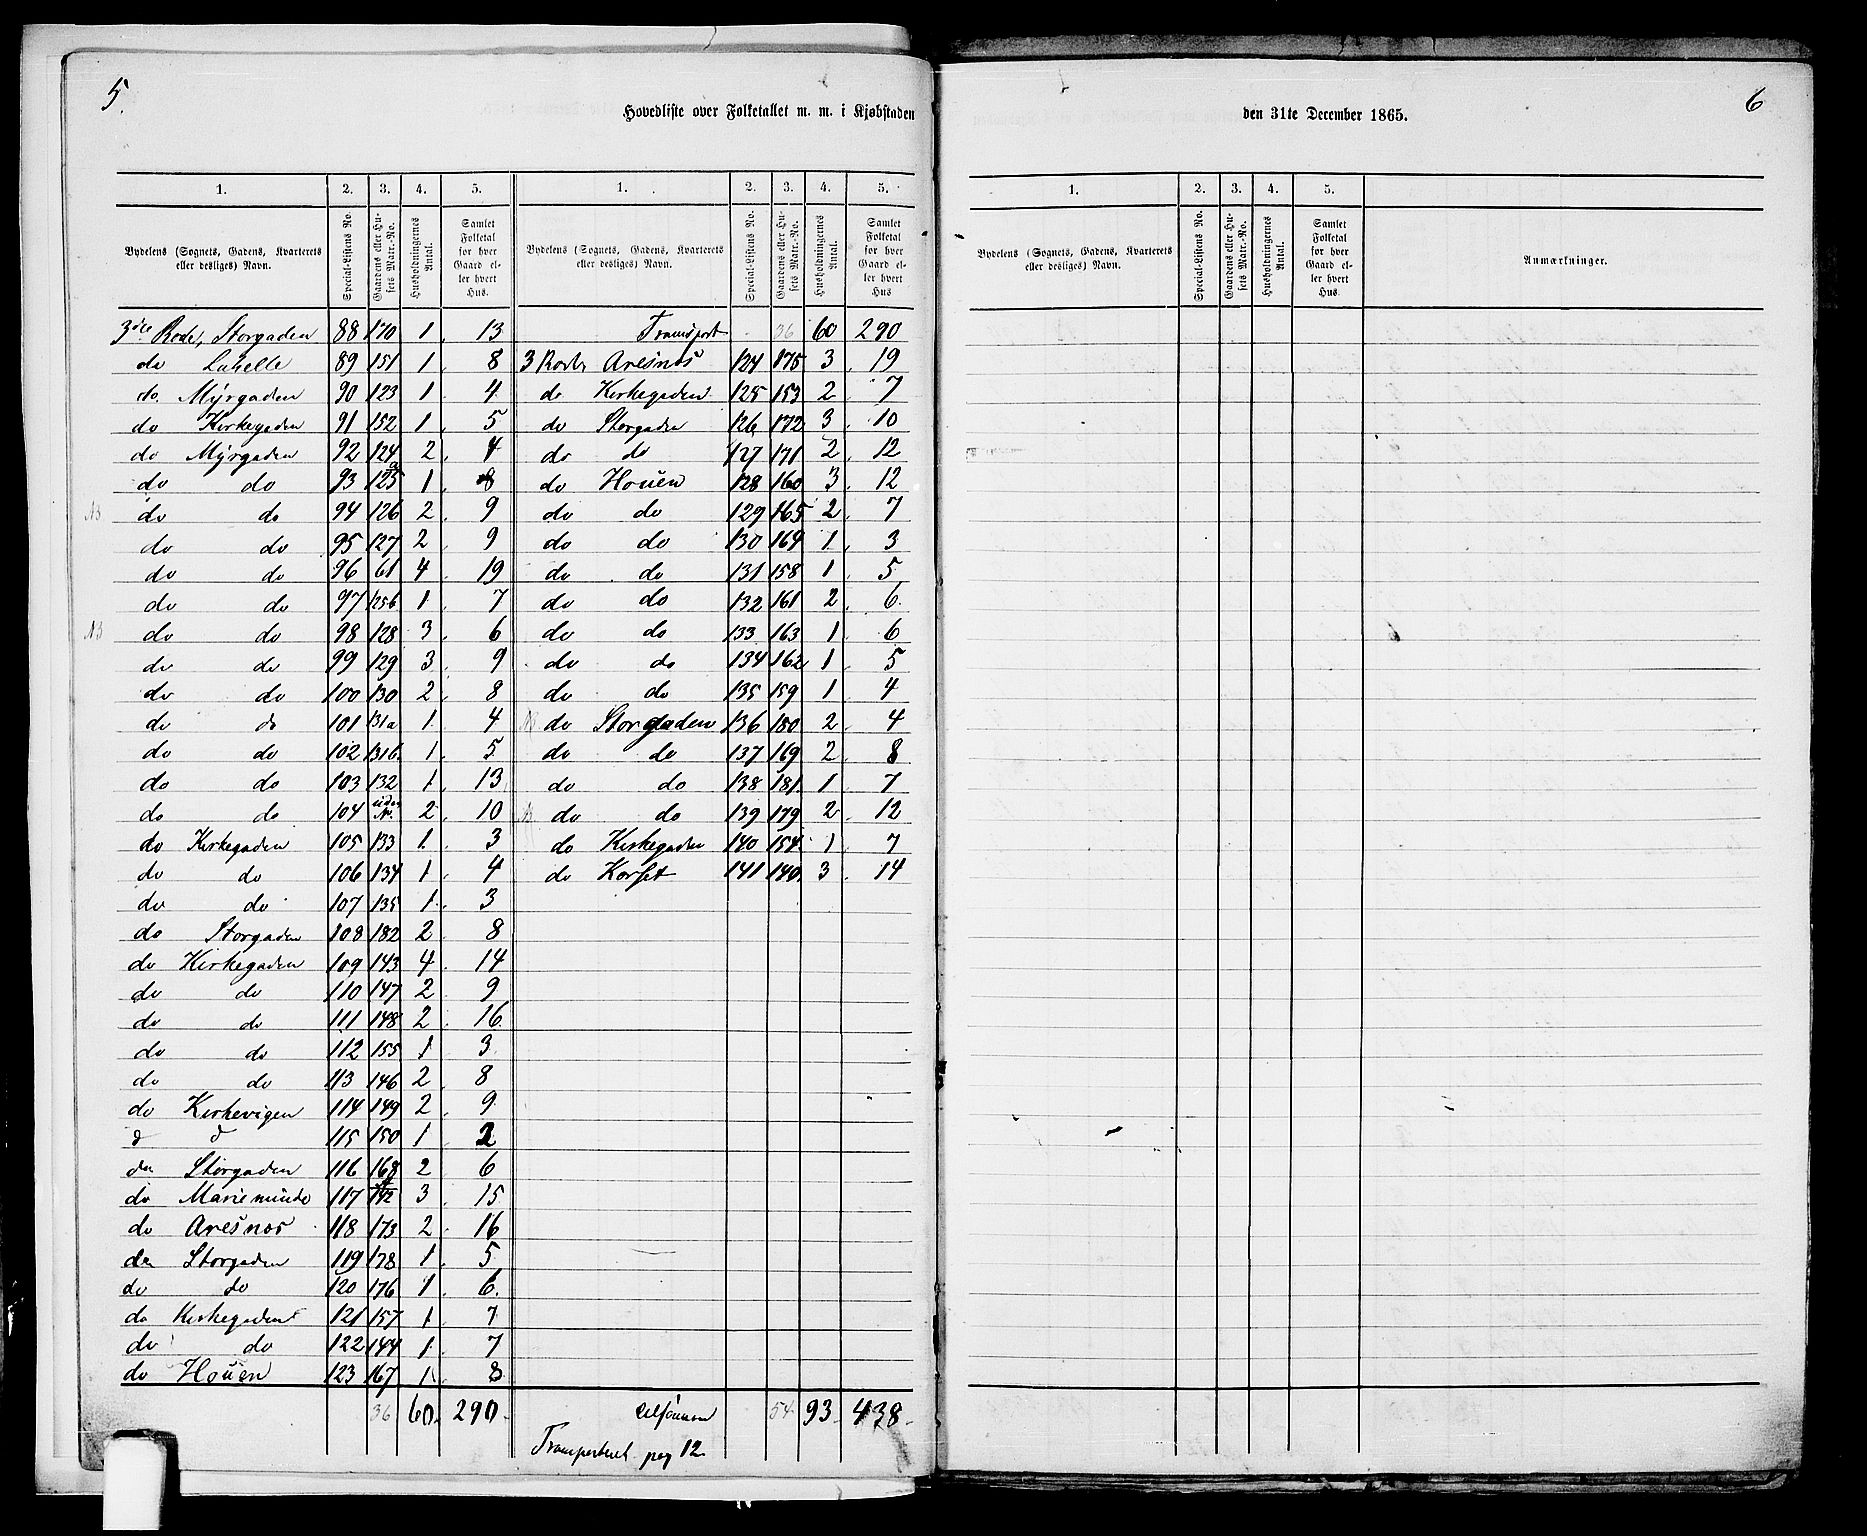 5.
Hovedliste over Folketallet m. m. i Kjøbstaden
1. 2. 3. 4. 5. 1. 2. 3. 4. 5.
Bydelens (Sognets, Gadens, Kvarterets eller desliges) Navn. Special-Listens No. Gaardens eller Husets Matr.-No. Husholdningernes Antal. Samlet Folketal for hver Gaard eller hvert Hus. Bydelens (Sognets, Gadens, Kvarterets eller desliges) Navn. Special-Listens No. Gaardens eller Husets Matr.-No. Husholdningernes Antal. Samlet Folketal for hver Gaard eller hvert Hus
3die Rode, Storgaden 88 170 1 13
do Luhelle 89 151 1 8
do. Myrgaden 90 123 1 4
do Kirkegaden 91 152 1 5
do Myrgaden 92 124 2 4
do do 93 125a 1 8
NB do do 94 126 2 9
do do 95 127 2 9
do do 96 61 4 19
do do 97 125b 1 7
NB do do 98 128 3 6
do do 99 129 3 9
do do 100 130 2 8
do do 101 131a 1 4
do do 102 131b. 1 5
do do 103 132 1 13
do do 104 uden No. 2 10
do Kirkegaden 105 133 1 3
do do 106 134 1 4
do do 107 135 1 3
do Storgaden 108 182 2 8
do Kirkegaden 109 143 4 14
do do 110 147 2 9
do do 111 148 2 16
do do 112 155 1 3
do do 113 146 2 8
do Kirkevigen 114 149 2 9
d d 115 150 1 2
do Storgaden 116 168 2 6
do Marieminde 117 142 3 15
do Aresnos 118 173 2 16
do Storgaden 119 178 1 5
do do 120 176 1 6
do Kirkegaden 121 157 1 7
do do 122 144 1 7
do Houen 123 167 1 8
36 60 290
Transport 36 60 290
3 Rode Aresnos 124 175 3 19
do Kirkegaden 125 153 2 7
do Storgaden 126 172 3 10
do do 127 171 2 12
do Houen 128 160 3 12
do do 129 165 2 7
do do 130 164 1 3
do do 131 158 1 5
do do 132 161 2 6
do do 133 163 1 6
do do 134 162 1 5
do do 135 159 1 4
NB do Storgaden 136 180 2 4
do do 137 169 2 8
do do 138 181 1 7
NB do do 139 179 2 12
do Kirkegaden 140 154 1 7
do Korset 141 140 3 14
54 93 438
Transporteret pag 12
den 31te December 1865.
6
1. 2. 3. 4. 5.
Bydelens (Sognets, Gadens, Kvarterets eller desliges) Navn. Special-Listens No. Gaardens eller Husets Matr.-No. Husholdningernes Antal. Samlet Folketal for hver Gaard eller hvert Hus. Anmærkninger.